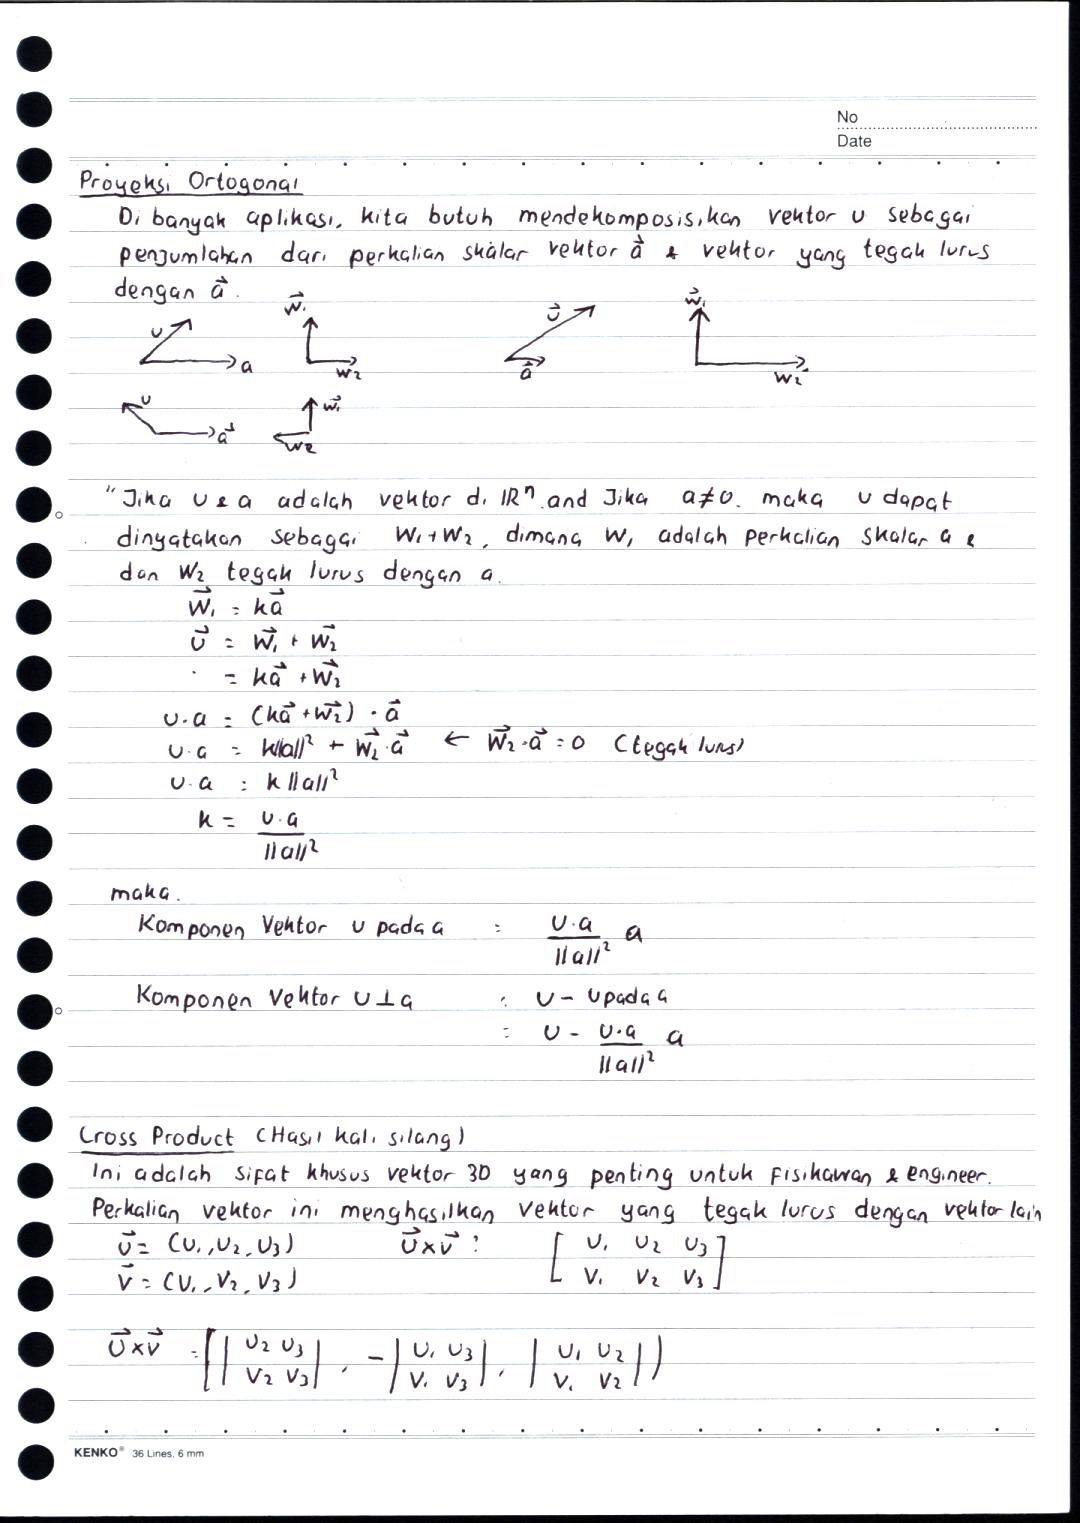 No
Date
Proyeksi Ortogonal
Di banyak aplikasi, kita butuh mendekomposisikan vektor u sebagai
penjumlahan dari perkalian skalar vektor a⃗ & vektor yang tegak lurus
dengan a⃗.
u a w⃗₁ w₂ u⃗ a⃗ w⃗₁ w₂
u a⃗ w⃗₁ w₂
"Jika u & a adalah vektor di ℝⁿ and Jika a≠0. maka u dapat
dinyatakan sebagai W₁+W₂, dimana W₁ adalah perkalian skalar a &
dan W₂ tegak lurus dengan a.
W⃗₁ = ka⃗
u⃗ = W⃗₁ + W⃗₂
= ka⃗ + W⃗₂
u·a = (ka⃗ + W⃗₂) · a⃗
u·a = k||a||² + W⃗₂·a⃗ ← W⃗₂·a⃗ = 0 (tegak lurus)
u·a = k ||a||²
k = u·a / ||a||²
maka.
Komponen Vektor u pada a : u·a / ||a||² a
Komponen Vektor u⊥a : u - u pada a
= u - u·a / ||a||² a
Cross Product (Hasil kali silang)
Ini adalah sifat khusus vektor 3D yang penting untuk fisikawan & engineer.
Perkalian vektor ini menghasilkan vektor yang tegak lurus dengan vektor lain
u⃗ = (u₁, u₂, u₃) u⃗×v⃗ : [ u₁ u₂ u₃
v⃗ = (v₁, v₂, v₃) v₁ v₂ v₃ ]
u⃗×v⃗ = [ | u₂ u₃ | , - | u₁ u₃ | , | u₁ u₂ | )
| v₂ v₃ | | v₁ v₃ | | v₁ v₂ |
KENKO® 36 Lines, 6 mm